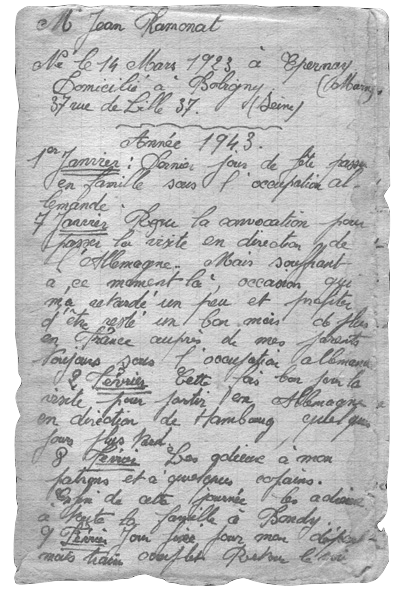 Mr Jean Ramonat
Né le 14 Mars 1923 à Epernay
Domicilié à Bobigny (Marne)
37 rue de Lille 37. (Seine)
Année 1943.
1er Janvier : Dernier jour de fête passé
en famille sous l'occupation al-
lemande.
7 Janvier Reçu la convocation pour
passer la visite en direction de
l'Allemagne. Mais souffrant
à ce moment-là, occasion qui
m'a retardé un peu et profiter
d'être resté un bon mois de plus
en France auprès de mes parents
toujours sous l'occupation allemande
2 Février Cette fois bon pour la
visite pour partir en Allemagne
en direction de Hambourg, quelques
jours plus tard.
8 Février Les adieux à mon
patron et à quelques copains.
de cette journée les adieux
à toute la famille à Bondy.
9 Février Jour fixé pour mon départ
mais train complet Retour